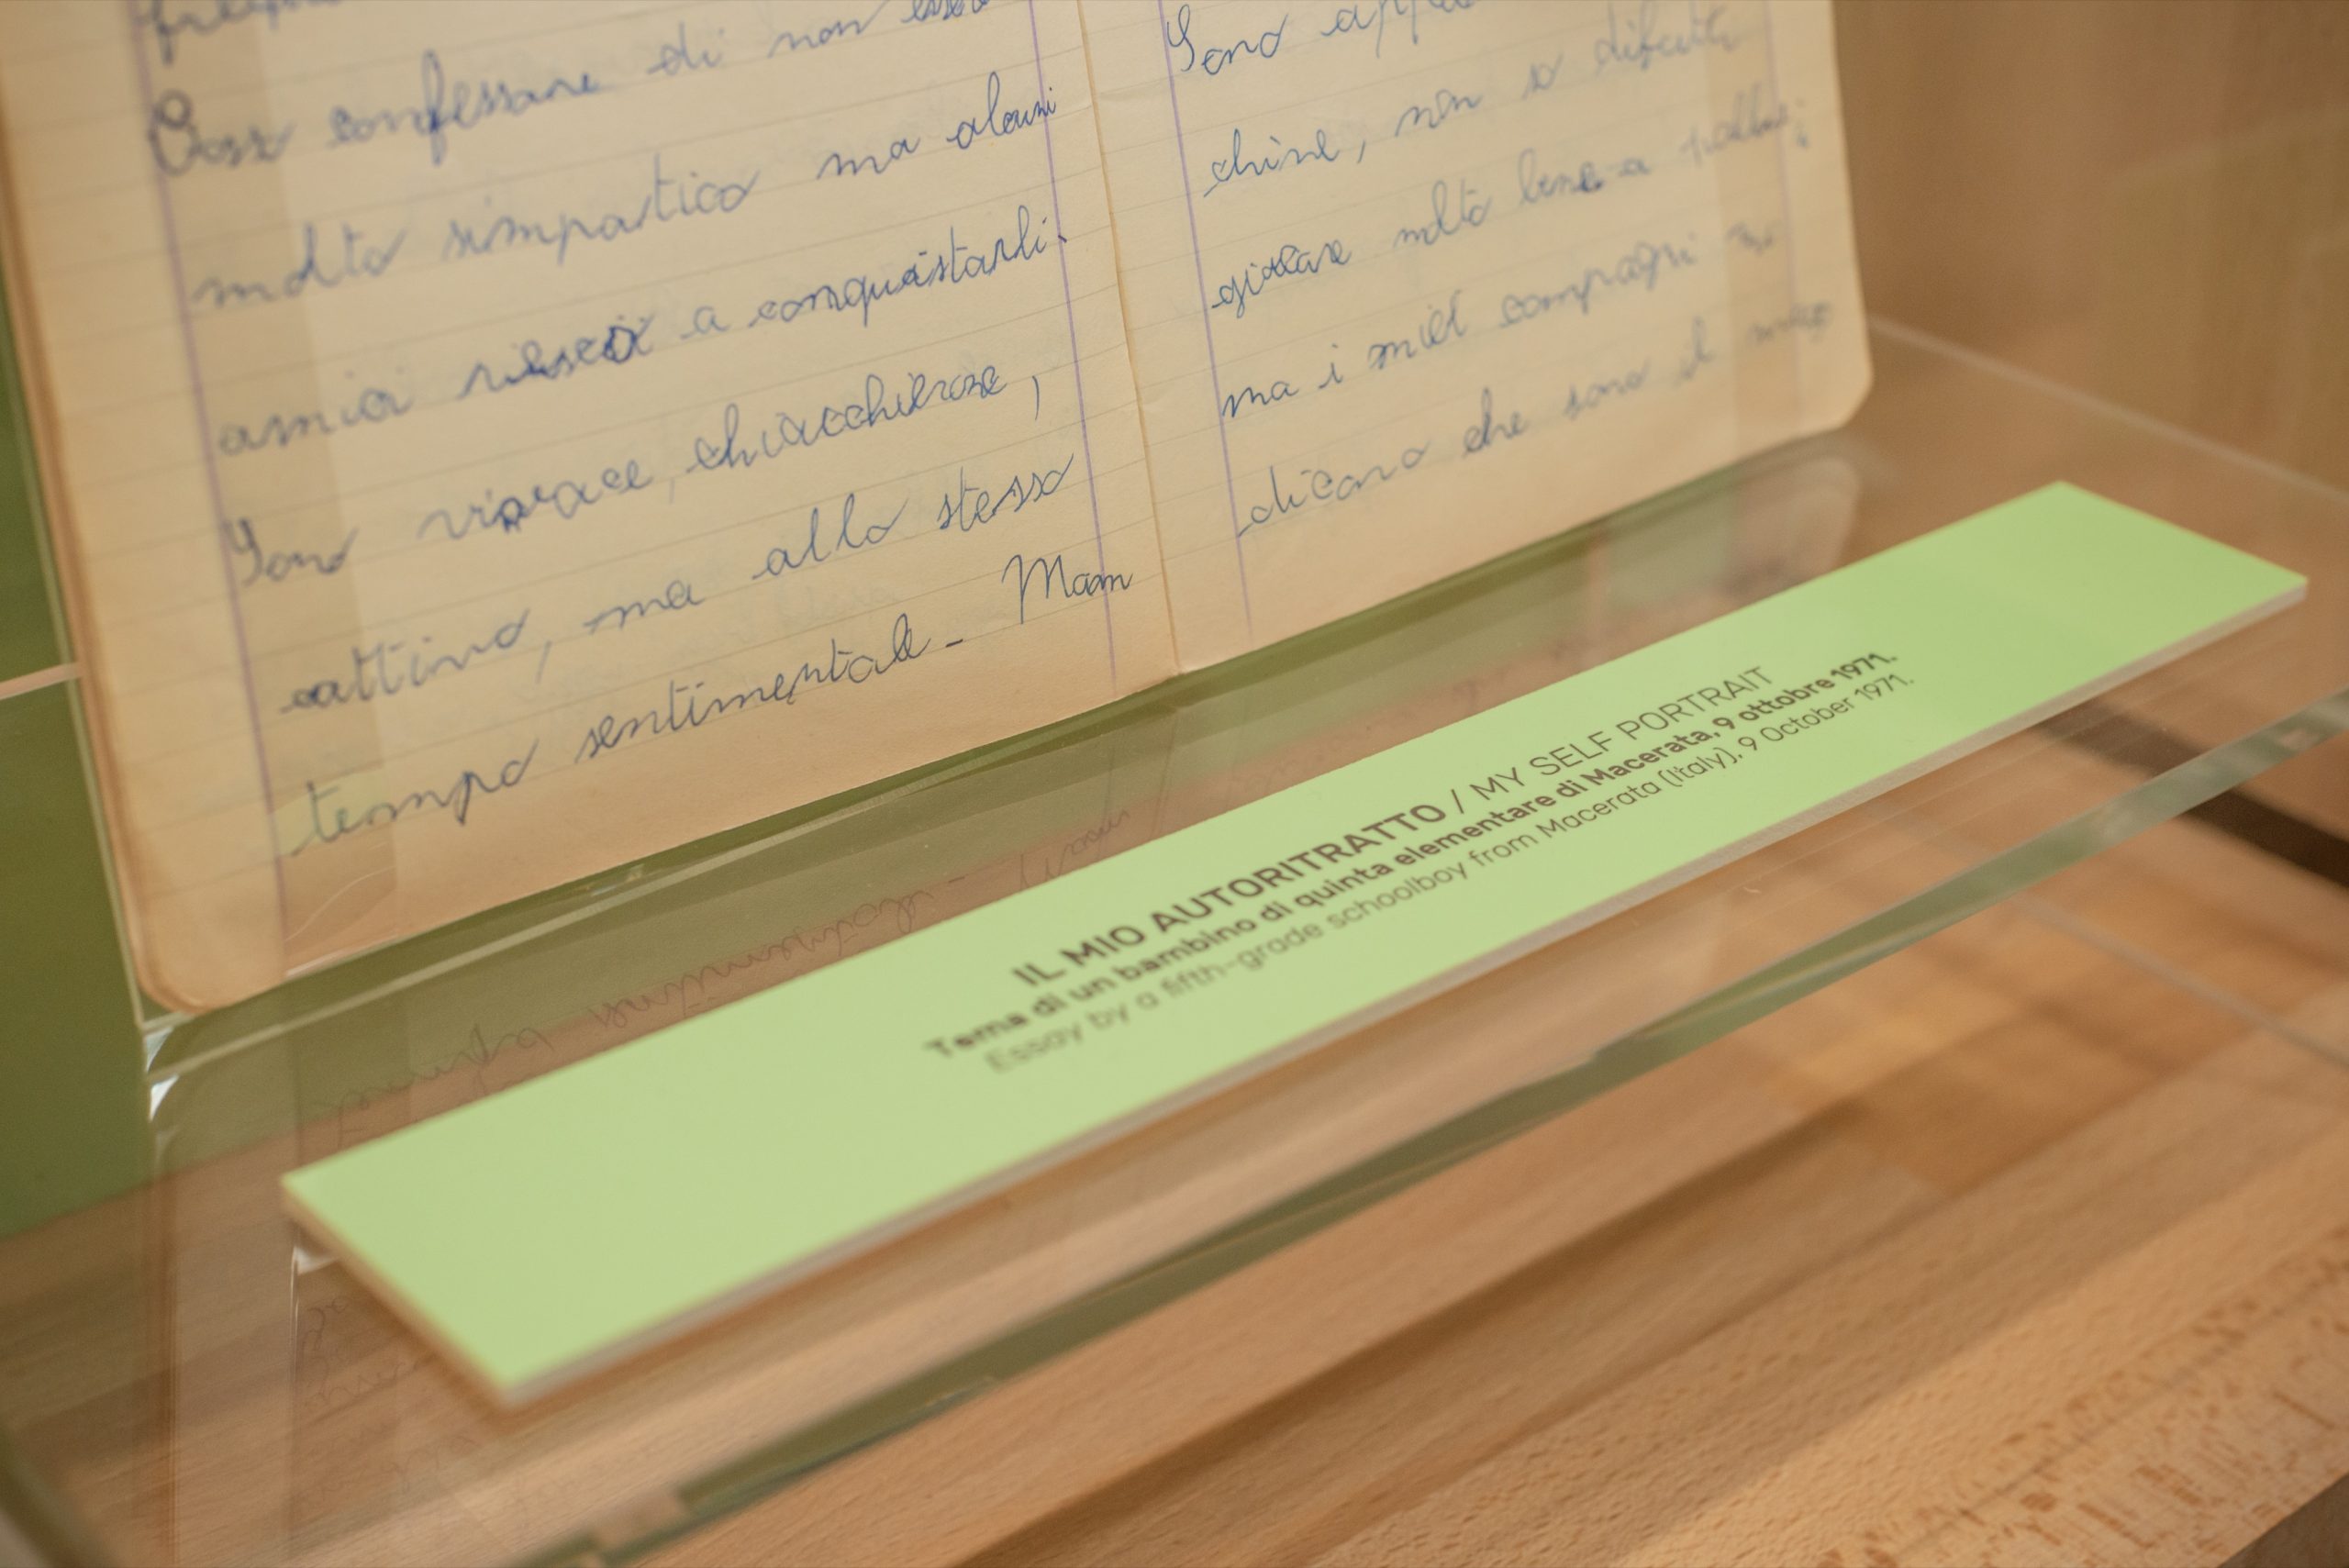 Posso confessare di non essere
molto simpatico ma alcuni
amici riesco a conquistarli.
Sono vivace, chiacchierone,
cattivo, ma allo stesso
tempo sentimentale - Mam
Sono
chine, non so difatti
giocare molto bene a palla;
ma i miei compagni mi
dicono che sono il
IL MIO AUTORITRATTO / MY SELF PORTRAIT
Tema di un bambino di quinta elementare di Macerata, 9 ottobre 1971.
Essay by a fifth-grade schoolboy from Macerata (Italy), 9 October 1971.